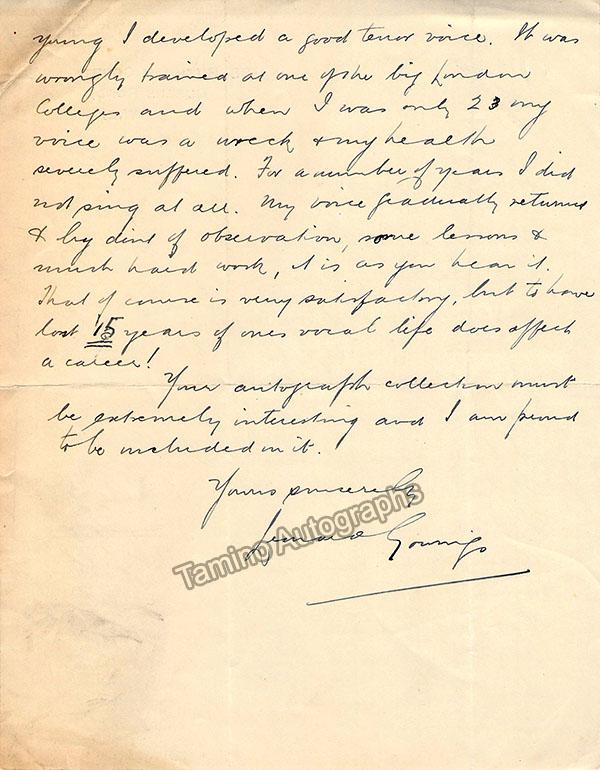 young I developed a good tenor voice. It was
wrongly trained at one of the big London
Colleges and when I was only 23 my
voice was a wreck & my health
severely suffered. For a number of years I did
not sing at all. My voice gradually returned
& by dint of observation, some lessons &
much hard work, it is as you hear it.
That of course is very satisfactory, but to have
lost 15 years of ones vocal life does affect
a career!
Your autograph collection must
be extremely interesting and I am proud
to be included in it.
Yours sincerely
Leonard Gowings
Tamino Autographs